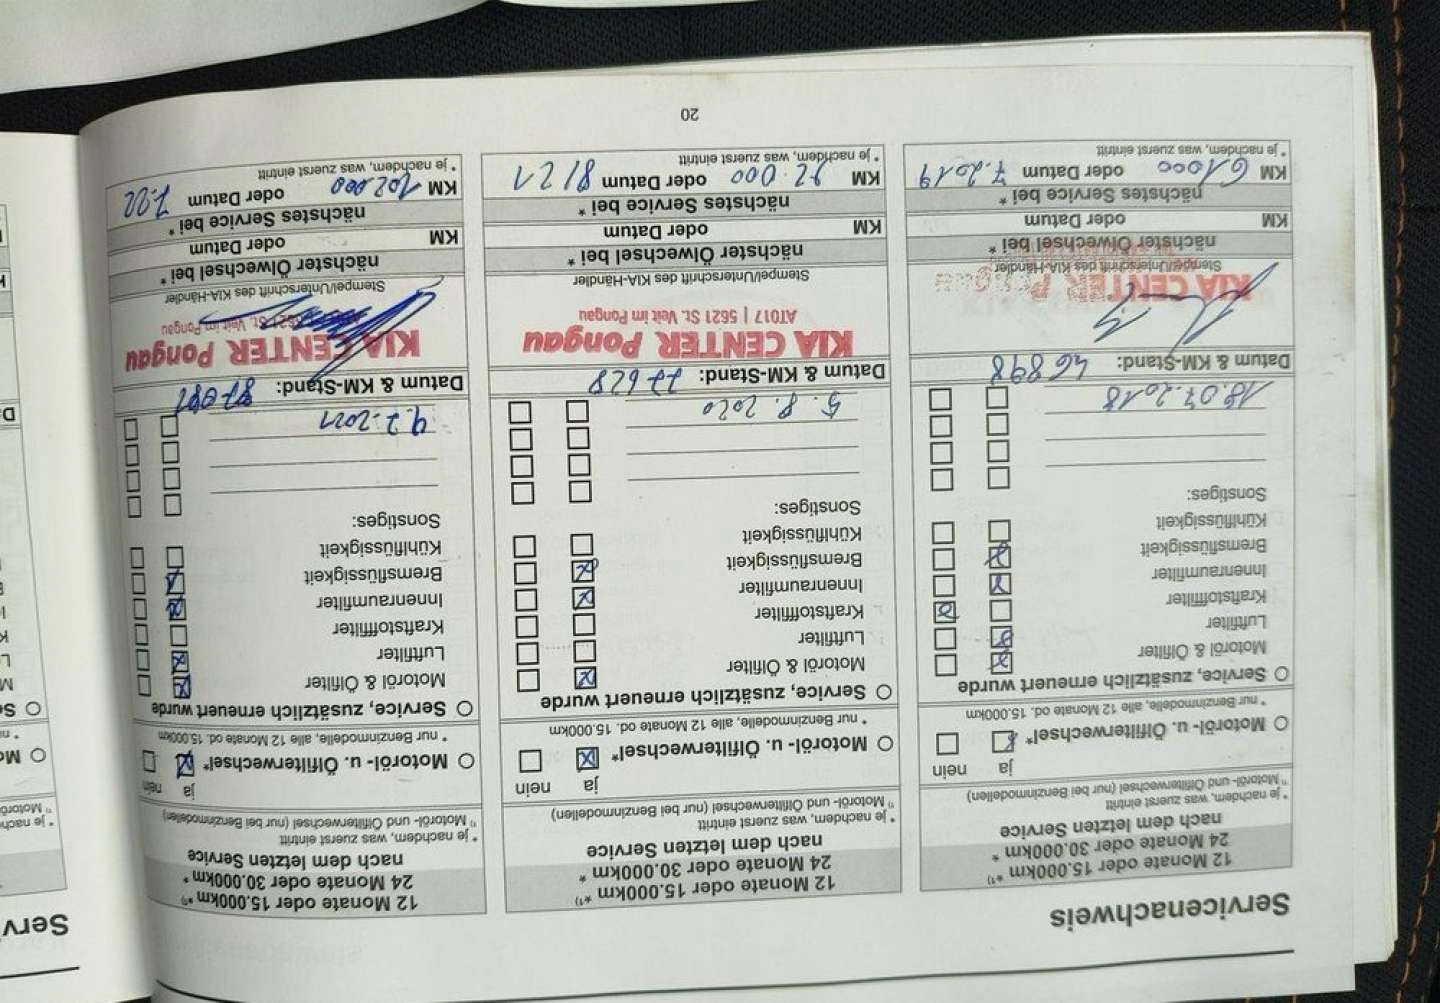 Servicenachweis
12 Monate oder 15.000km *¹⁾
24 Monate oder 30.000km *
nach dem letzten Service
* je nachdem, was zuerst eintritt
¹⁾ Motoröl- und Ölfilterwechsel (nur bei Benzinmodellen)
ja nein
Motoröl- u. Ölfilterwechsel*
* nur Benzinmodelle, alle 12 Monate od. 15.000km
Service, zusätzlich erneuert wurde
Motoröl & Ölfilter
Luftfilter
Kraftstofffilter
Innenraumfilter
Bremsflüssigkeit
Kühlflüssigkeit
Sonstiges:
18.07.2018
Datum & KM-Stand: 46898
KIA CENTER Pongau
Stempel/Unterschrift des KIA-Händler
nächster Ölwechsel bei *
KM oder Datum
nächstes Service bei *
KM 61000 oder Datum 7.2019
* je nachdem, was zuerst eintritt
12 Monate oder 15.000km *¹⁾
24 Monate oder 30.000km *
nach dem letzten Service
* je nachdem, was zuerst eintritt
¹⁾ Motoröl- und Ölfilterwechsel (nur bei Benzinmodellen)
ja nein
Motoröl- u. Ölfilterwechsel*
* nur Benzinmodelle, alle 12 Monate od. 15.000km
Service, zusätzlich erneuert wurde
Motoröl & Ölfilter
Luftfilter
Kraftstofffilter
Innenraumfilter
Bremsflüssigkeit
Kühlflüssigkeit
Sonstiges:
5.8.2020
Datum & KM-Stand: 77628
KIA CENTER Pongau
AT017 | 5621 St. Veit im Pongau
Stempel/Unterschrift des KIA-Händler
nächster Ölwechsel bei *
KM oder Datum
nächstes Service bei *
KM 92.000 oder Datum 8/21
* je nachdem, was zuerst eintritt
12 Monate oder 15.000km *¹⁾
24 Monate oder 30.000km *
nach dem letzten Service
* je nachdem, was zuerst eintritt
¹⁾ Motoröl- und Ölfilterwechsel (nur bei Benzinmodellen)
ja nein
Motoröl- u. Ölfilterwechsel*
* nur Benzinmodelle, alle 12 Monate od. 15.000km
Service, zusätzlich erneuert wurde
Motoröl & Ölfilter
Luftfilter
Kraftstofffilter
Innenraumfilter
Bremsflüssigkeit
Kühlflüssigkeit
Sonstiges:
9.7.2021
Datum & KM-Stand:
KIA CENTER Pongau
5621 St. Veit im Pongau
Stempel/Unterschrift des KIA-Händler
nächster Ölwechsel bei *
KM oder Datum
nächstes Service bei *
KM 102.000 oder Datum 7.22
* je nachdem, was zuerst eintritt
20
Serv